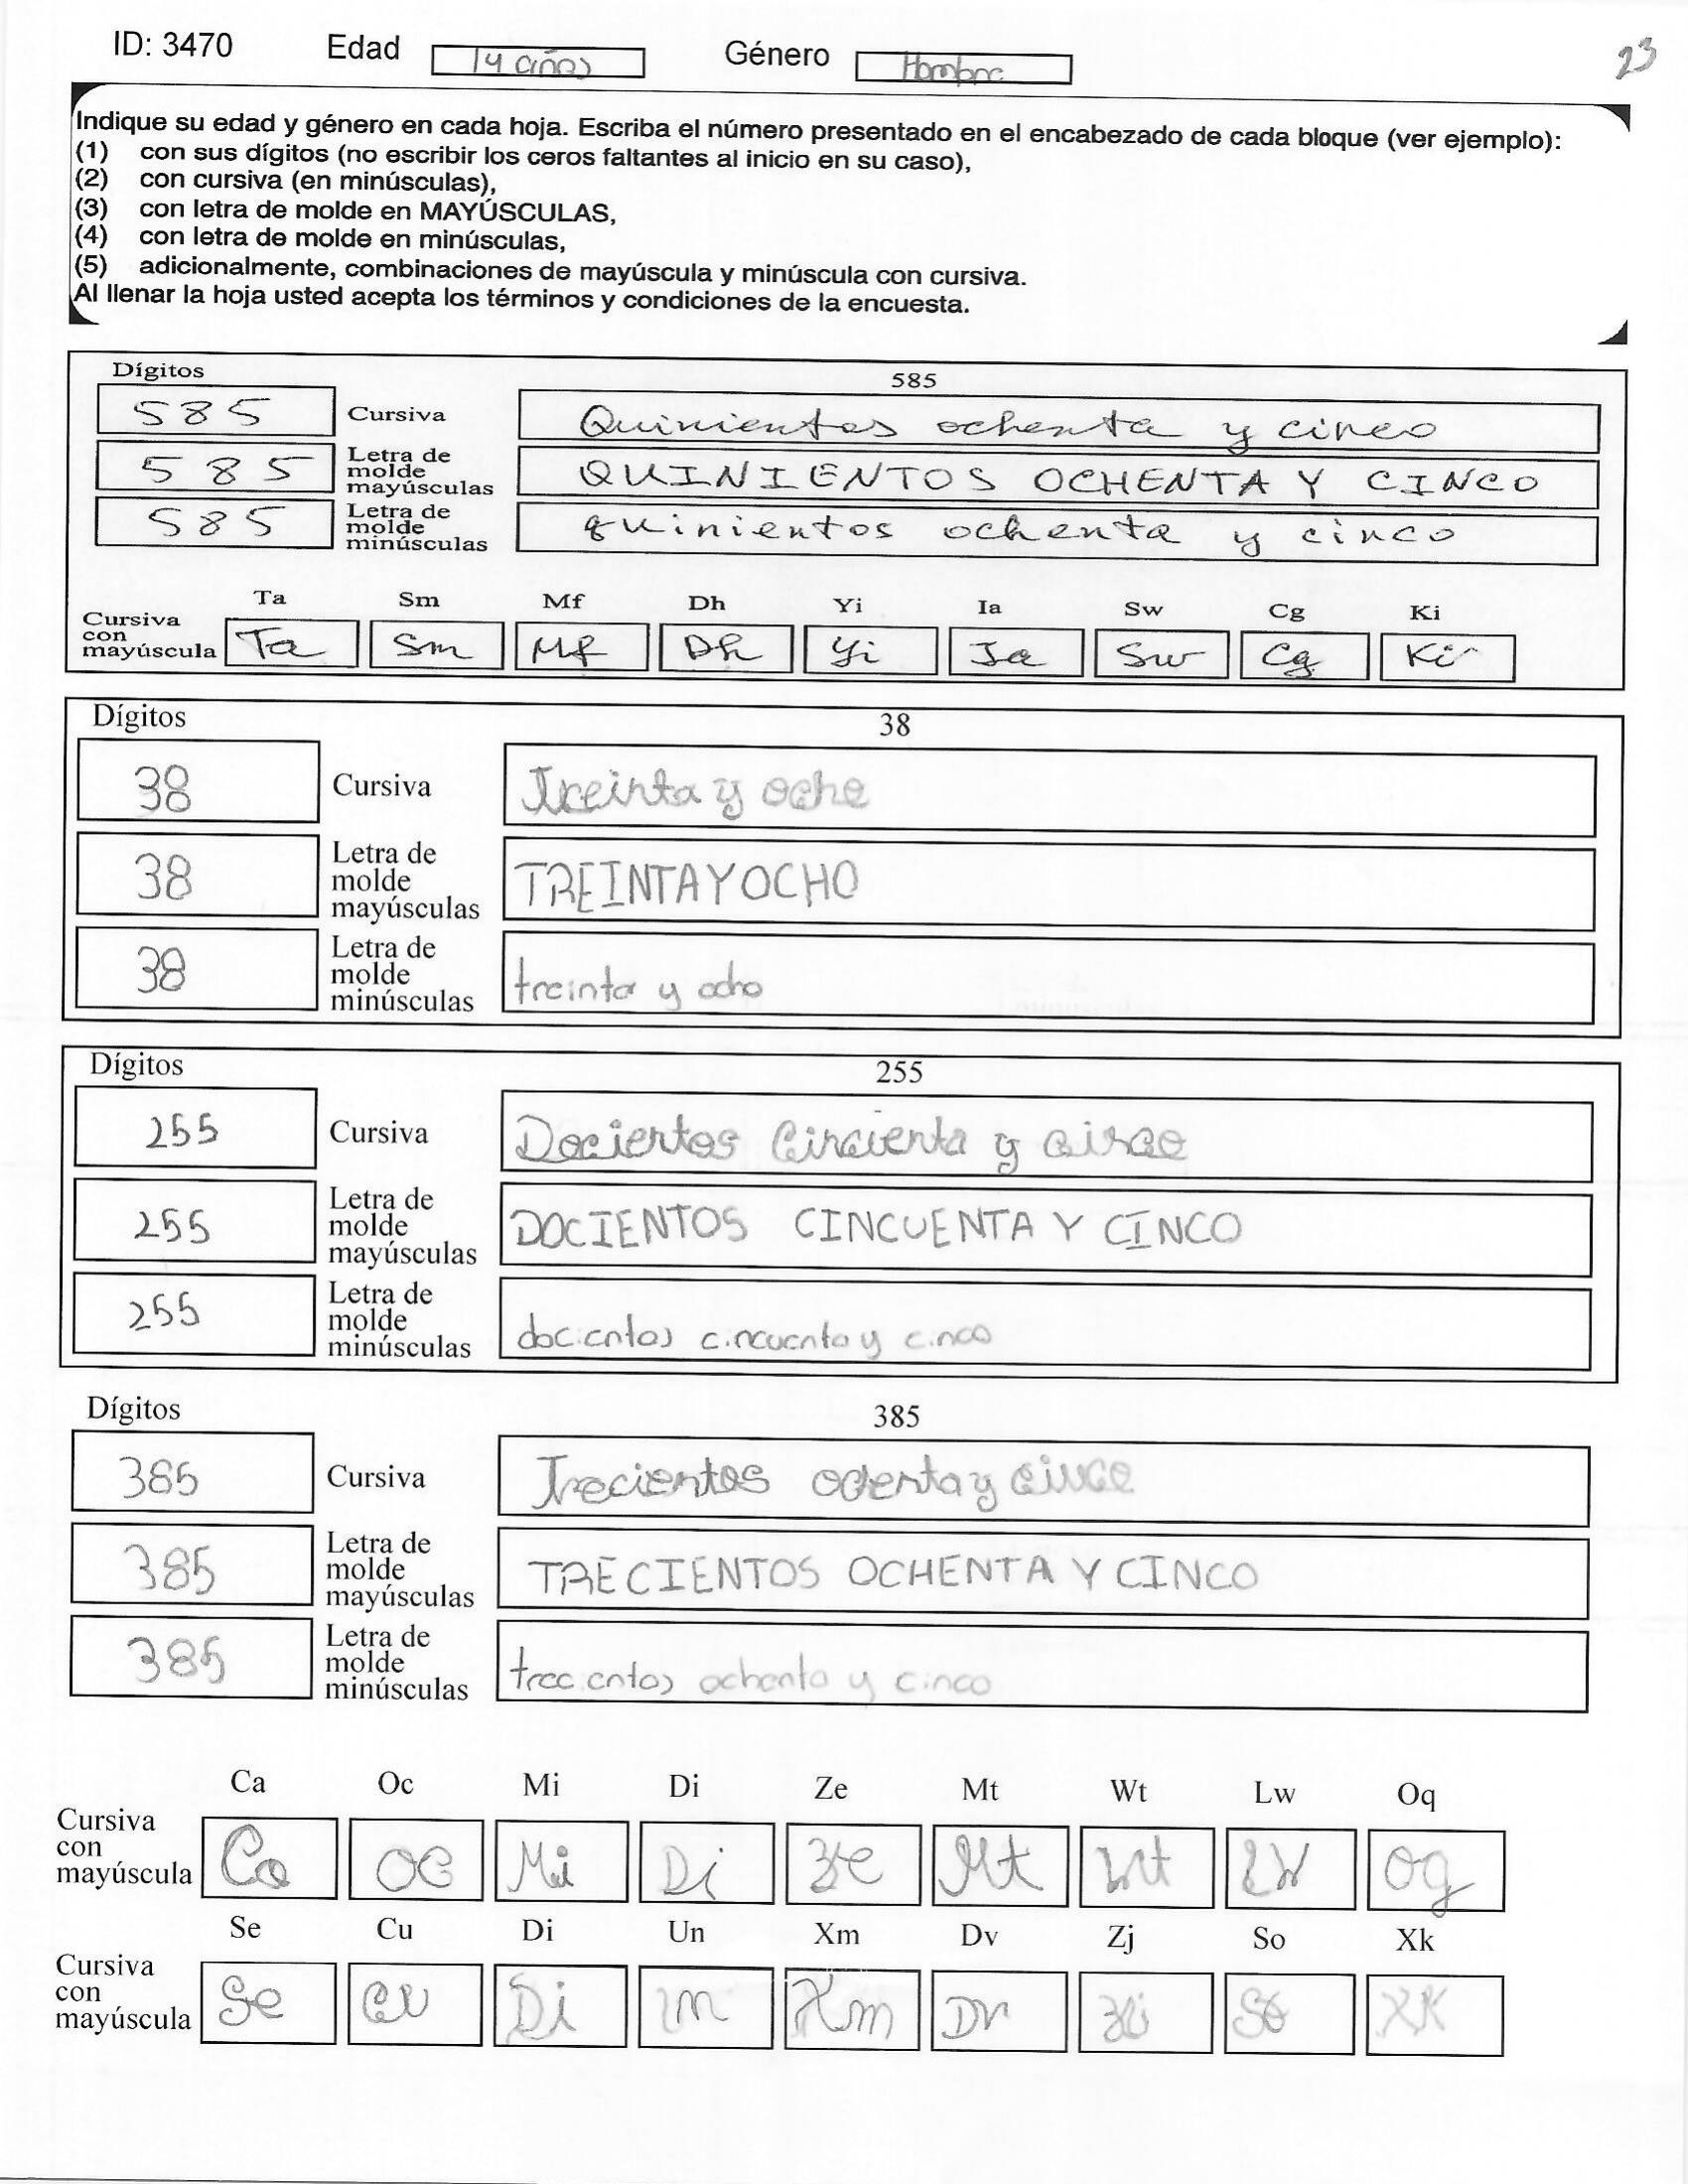 ID: 3470 Edad 14 años Género Hombre 23
Indique su edad y género en cada hoja. Escriba el número presentado en el encabezado de cada bloque (ver ejemplo):
(1) con sus dígitos (no escribir los ceros faltantes al inicio en su caso),
(2) con cursiva (en minúsculas),
(3) con letra de molde en MAYÚSCULAS,
(4) con letra de molde en minúsculas,
(5) adicionalmente, combinaciones de mayúscula y minúscula con cursiva.
Al llenar la hoja usted acepta los términos y condiciones de la encuesta.
Dígitos 585
585 Cursiva Quinientos ochenta y cinco
585 Letra de molde mayúsculas QUINIENTOS OCHENTA Y CINCO
585 Letra de molde minúsculas quinientos ochenta y cinco
Ta Sm Mf Dh Yi Ia Sw Cg Ki
Cursiva con mayúscula Ta Sm Mf Dh Yi Ia Sw Cg Ki
Dígitos 38
38 Cursiva Treinta y ocho
38 Letra de molde mayúsculas TREINTA Y OCHO
38 Letra de molde minúsculas treinta y ocho
Dígitos 255
255 Cursiva Docientos Cincuenta y cinco
255 Letra de molde mayúsculas DOCIENTOS CINCUENTA Y CINCO
255 Letra de molde minúsculas docientos cincuenta y cinco
Dígitos 385
385 Cursiva Trecientos ochenta y cinco
385 Letra de molde mayúsculas TRECIENTOS OCHENTA Y CINCO
385 Letra de molde minúsculas trecientos ochenta y cinco
Ca Oc Mi Di Ze Mt Wt Lw Oq
Cursiva con mayúscula Ca Oc Mi Di Ze Mt Wt Lw Oq
Se Cu Di Un Xm Dv Zj So Xk
Cursiva con mayúscula Se Cu Di Un Xm Dv Zj So Xk